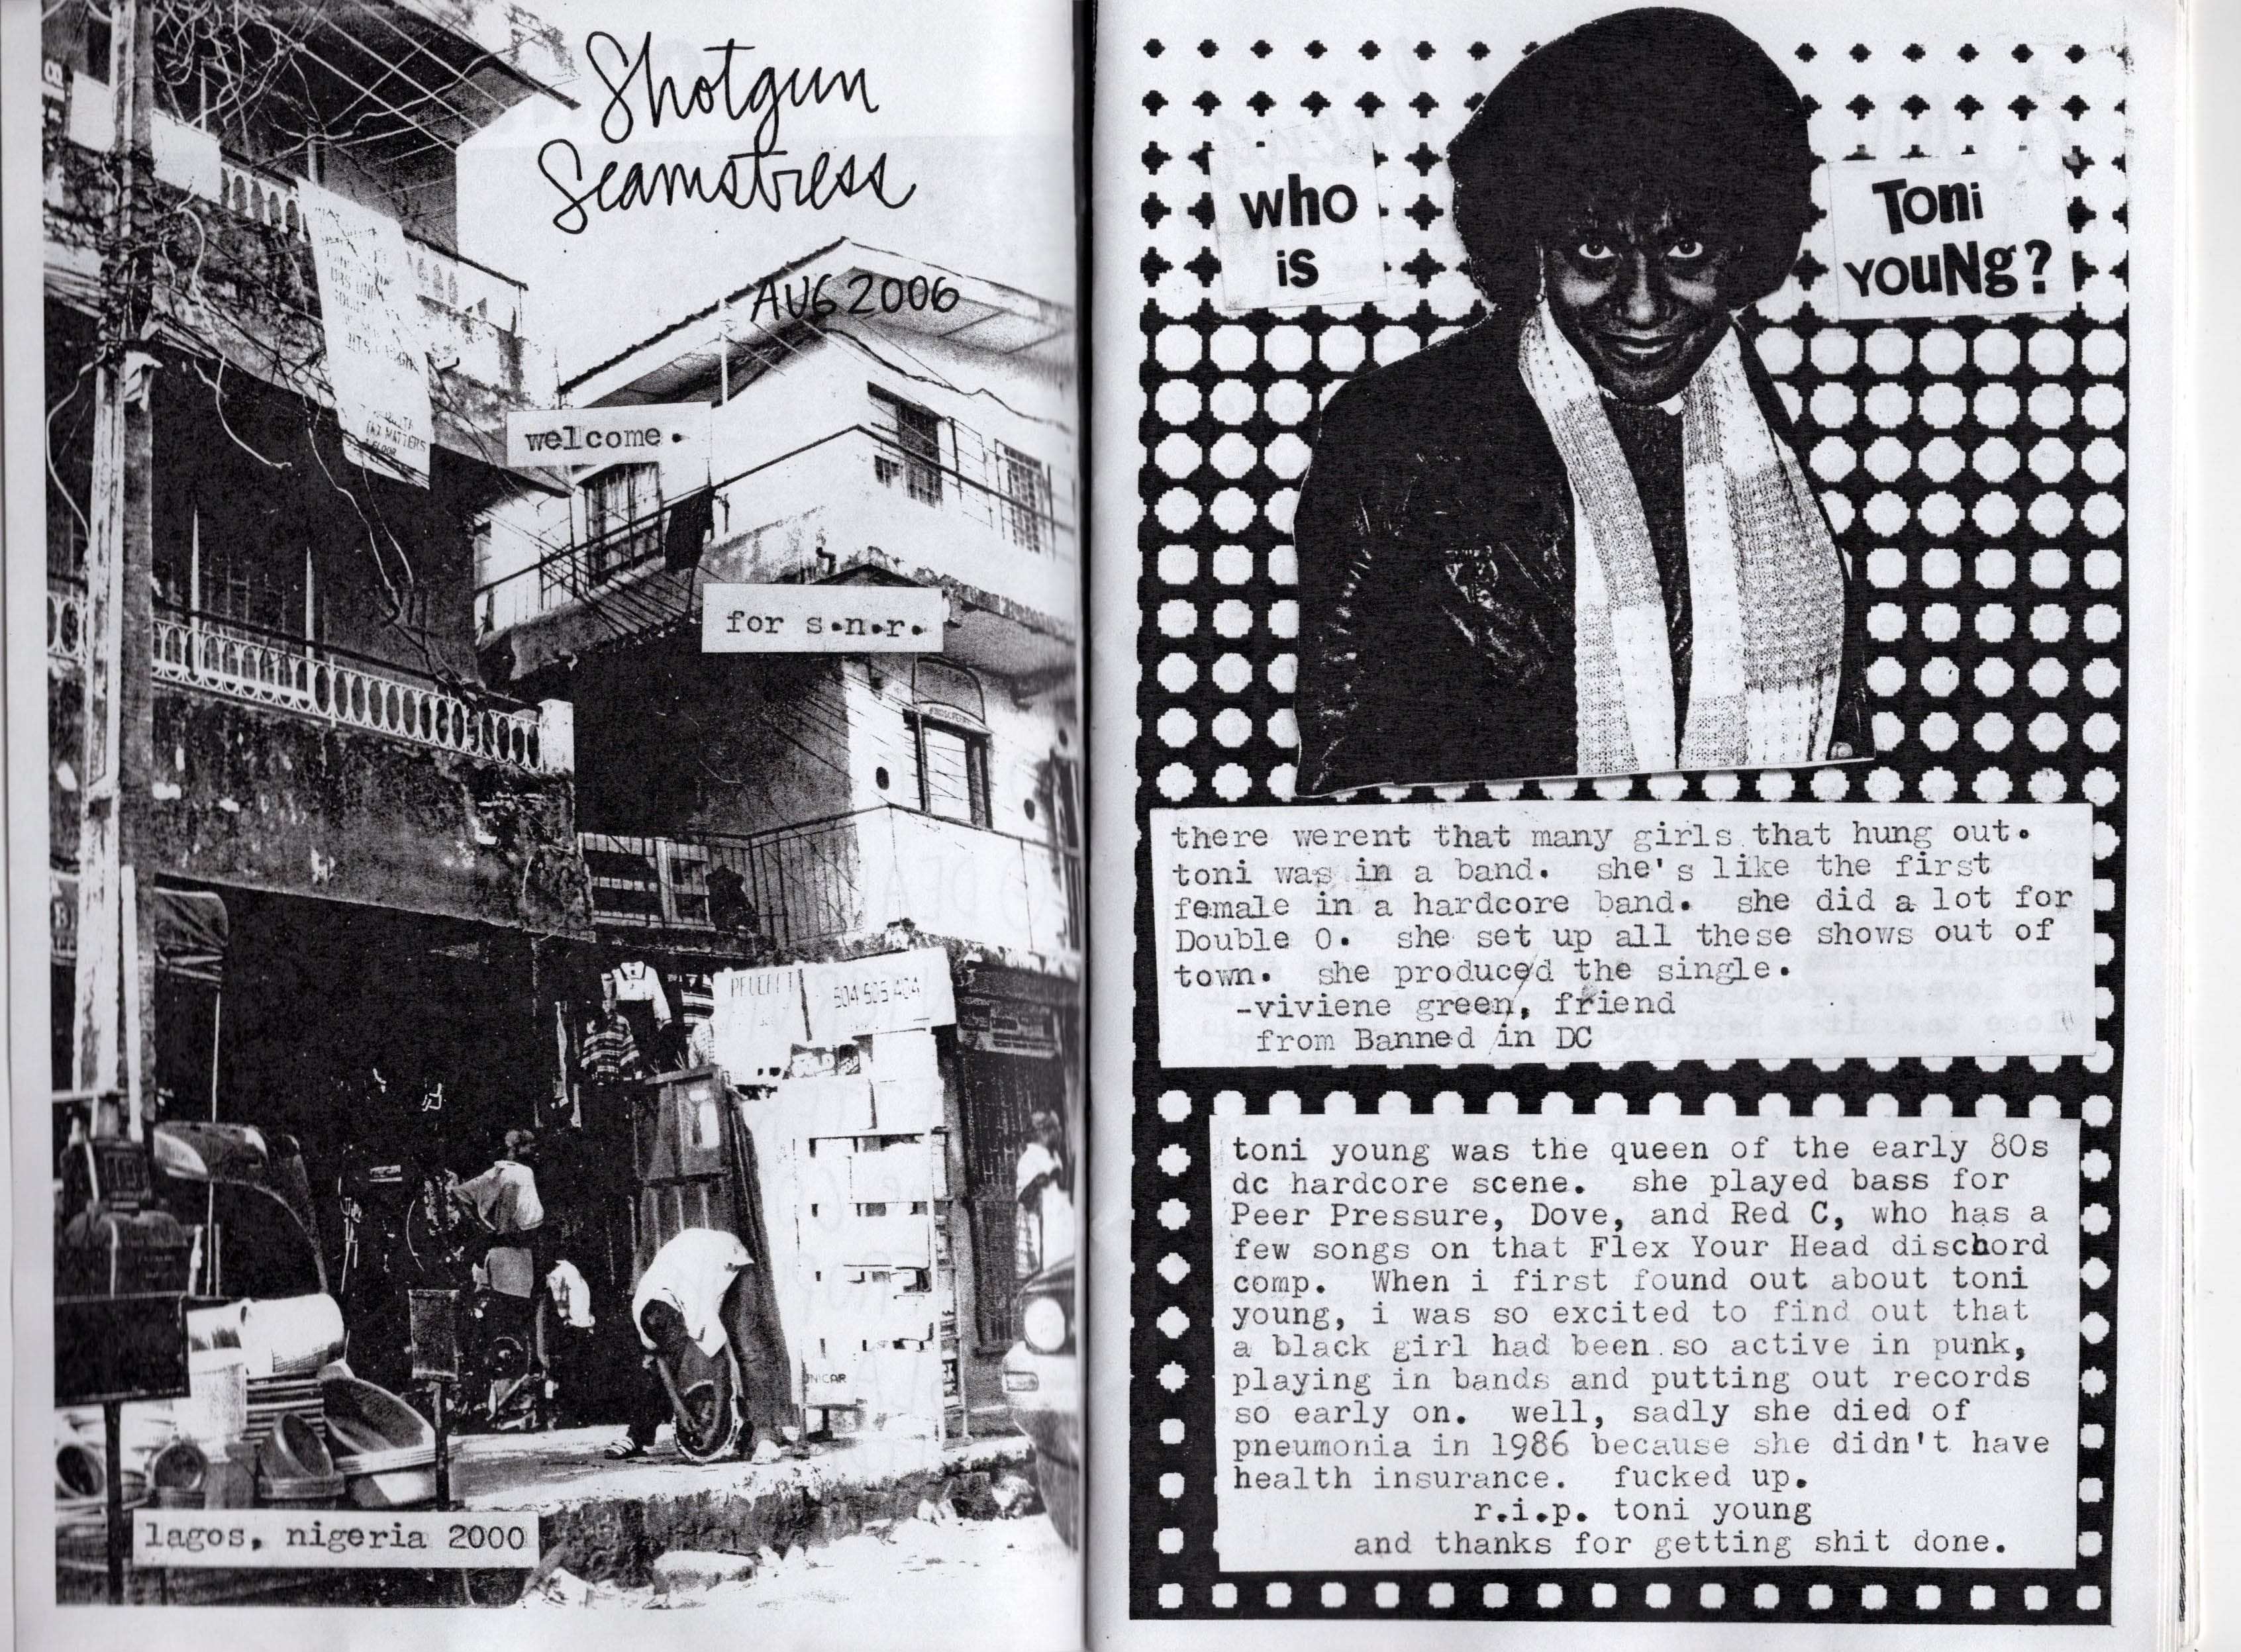 Shotgun
Seamstress
AUG 2006
welcome.
for s.n.r.
504 505 404
UNICAR
lagos, nigeria 2000
who
is
Toni
YOUNg?
there werent that many girls that hung out.
toni was in a band. she's like the first
female in a hardcore band. she did a lot for
Double O. she set up all these shows out of
town. she produced the single.
-viviene green, friend
from Banned in DC
toni young was the queen of the early 80s
dc hardcore scene. she played bass for
Peer Pressure, Dove, and Red C, who has a
few songs on that Flex Your Head dischord
comp. When i first found out about toni
young, i was so excited to find out that
a black girl had been so active in punk,
playing in bands and putting out records
so early on. well, sadly she died of
pneumonia in 1986 because she didn't have
health insurance. fucked up.
r.i.p. toni young
and thanks for getting shit done.